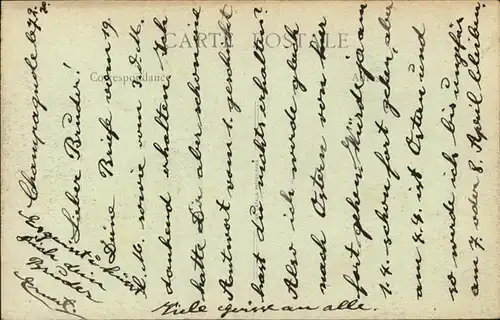 CARTE POSTALE
Correspondance
Champagnole
Lieber Bruder!
Deine Briefe vom 19.
v. M. sowie vom 3. d. M.
dankend erhalten. Ich
hatte Dir aber schon eine
Antwort vom 1. geschickt
hast du nichts erhalten?
Also ich werde gleich
nach Ostern von hier
fort gehen. Würde ja am
1.4. schon fort gehen, aber
am 4.4. ist Ostern und
so werde ich bis ungefär
am 7. oder 8. April bleiben.
Es grüsst u. küsst
dich dein
Bruder
Ernst.
Viele grüsse an alle.